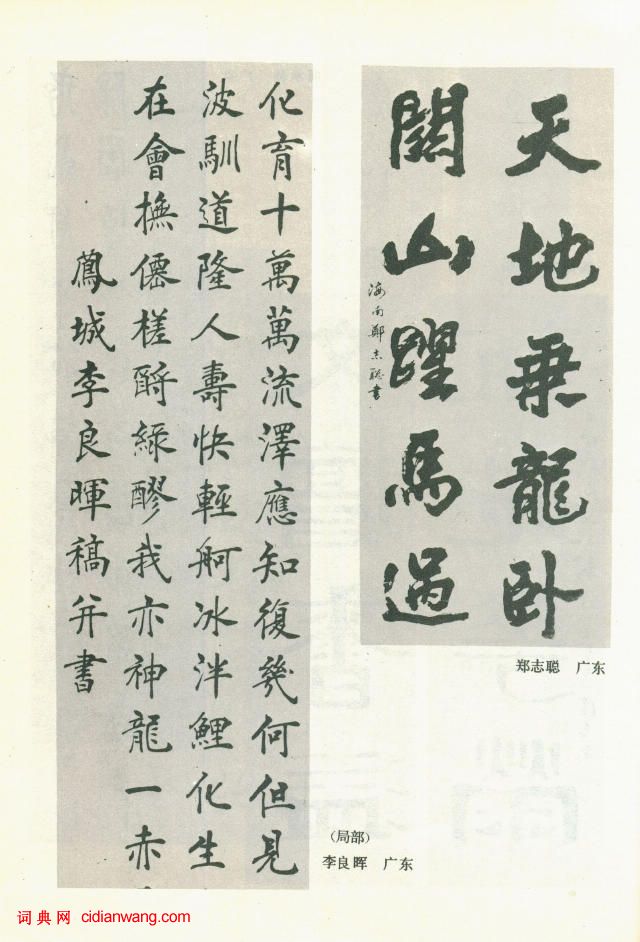 天地乘龍卧
關山躍馬過
海南鄭志聪書
郑志聪 广东
化育十萬萬流澤應知復幾何但見
波馴道隆人壽快輕舸冰泮鯉化生
在會撫僊槎酹緑醪我亦神龍一赤
鳳城李良暉稿并書
（局部）
李良晖 广东
词典网 cidianwang.com